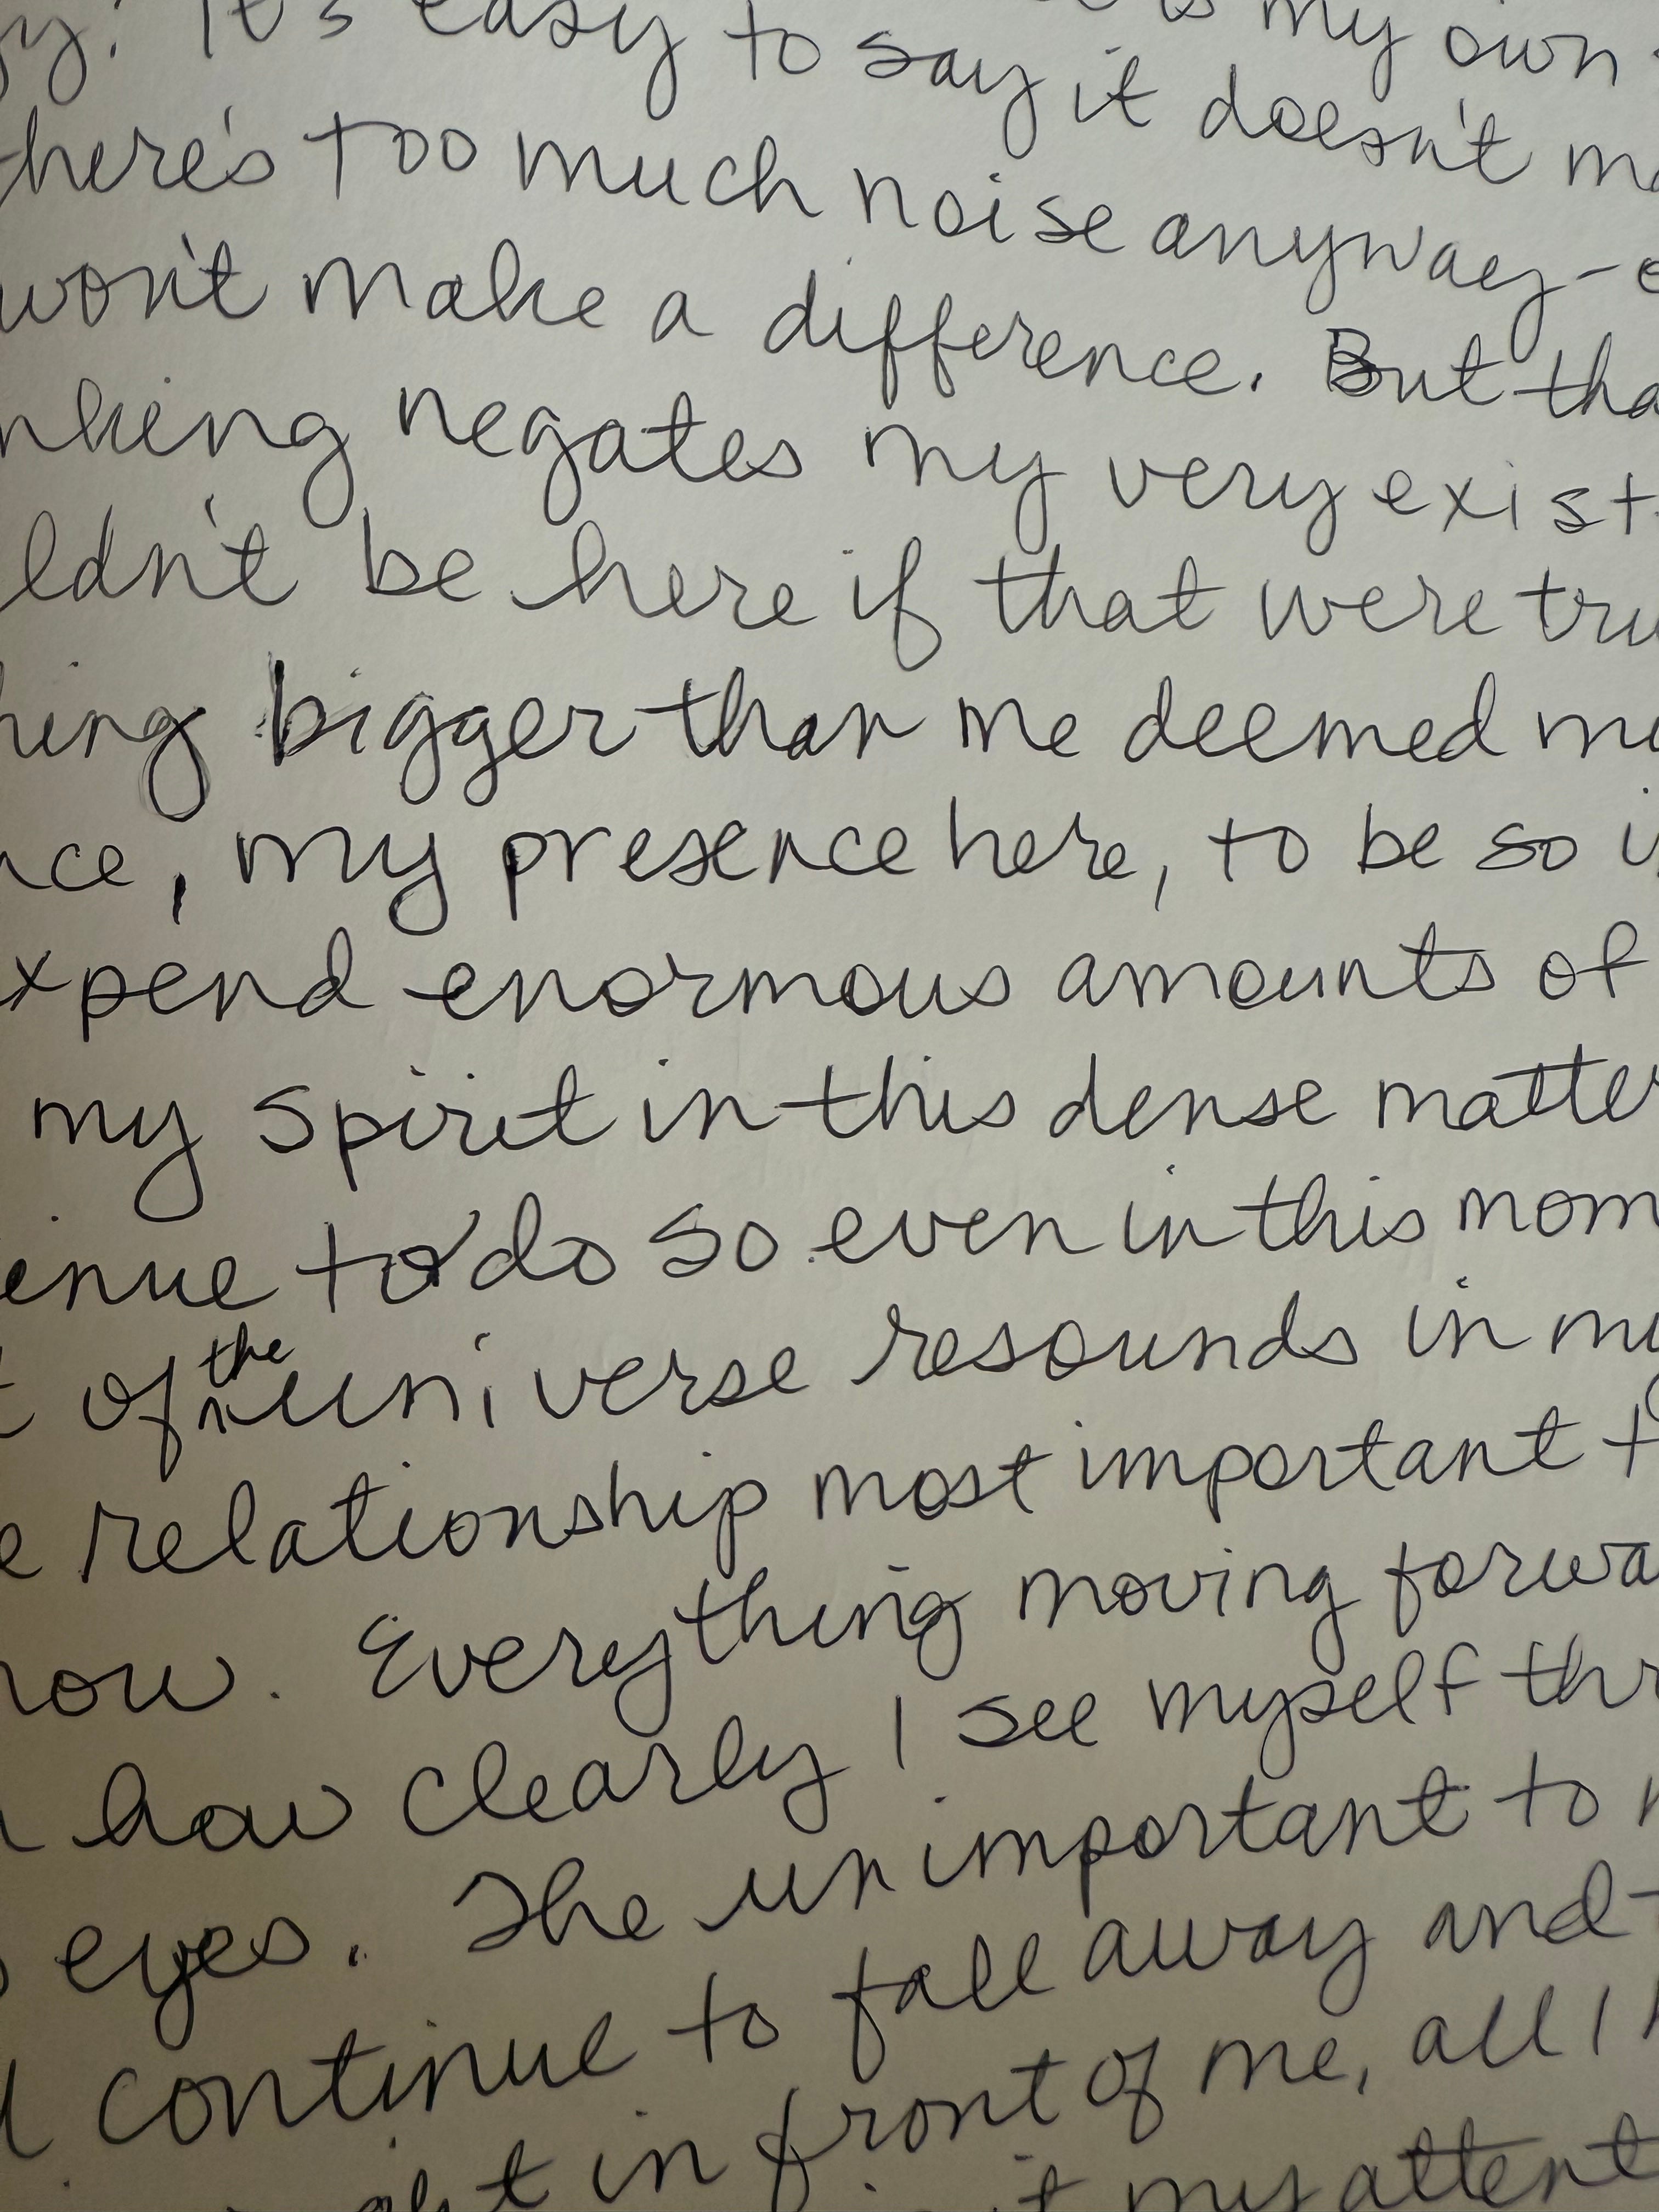 y? It's easy to say it doesn't ma
is my own
here's too much noise anyway-
won't make a difference. But tha
nking negates my very exist
ldn't be here if that were tru
hing bigger than me deemed m
nce, my presence here, to be so i
xpend enormous amounts of
my spirit in this dense matter
enue to do so even in this mom
of the universe resounds in my
e relationship most important t
now. Everything moving forwa
how clearly I see myself thr
eyes. The unimportant to
continue to fall away and
in front of me, all I
my attent